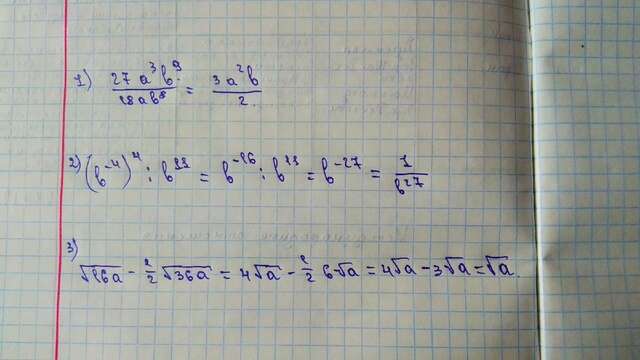 1) 27a³b⁹ / 18ab⁸ = 3a²b / 2
2) (b⁻⁴)⁴ : b¹¹ = b⁻¹⁶ : b¹¹ = b⁻²⁷ = 1 / b²⁷
3)
√16a - 1/2 √36a = 4√a - 1/2 6√a = 4√a - 3√a = √a.